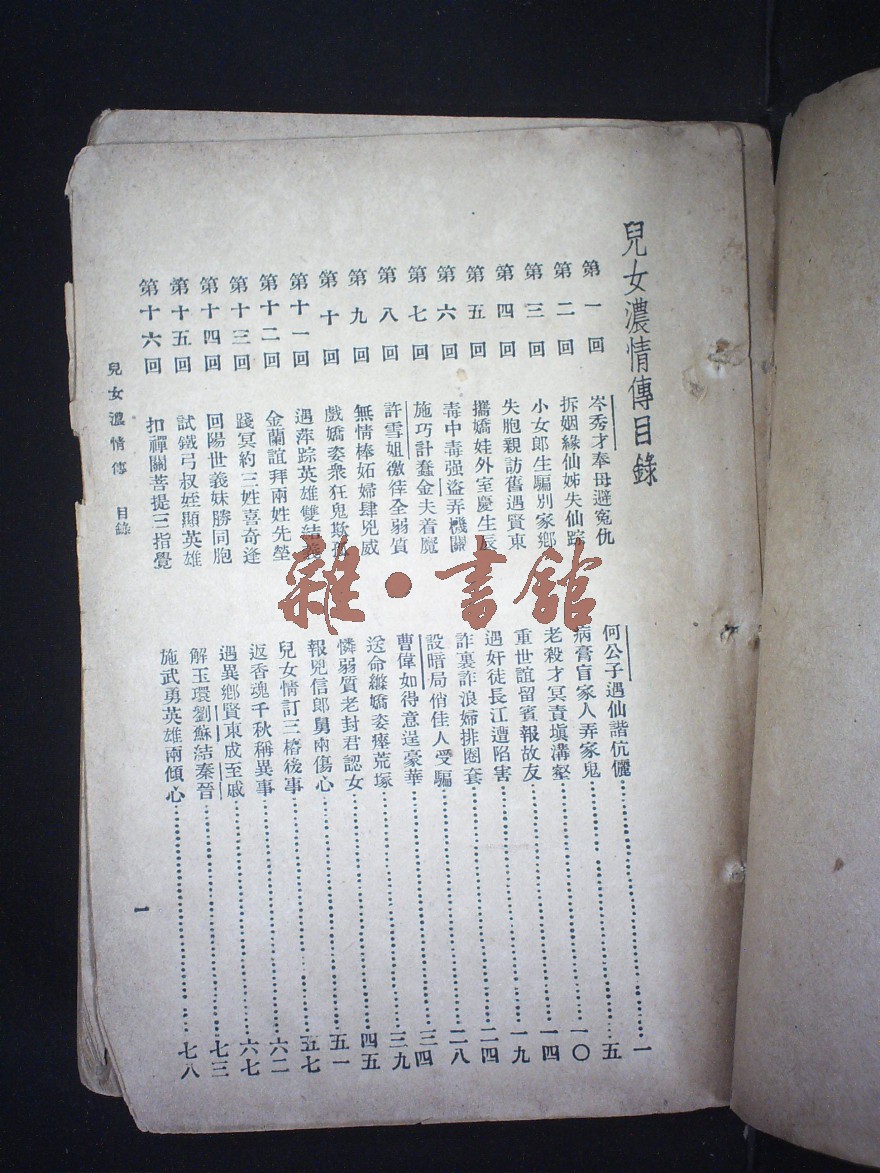 兒女濃情傳目錄
第一回 岑秀才奉母避寃仇 何公子遇仙諧伉儷 一
第二回 拆姻緣仙姊失仙踪 病膏盲家人弄家鬼 五
第三回 小女郎生騙別家鄉 老殺才冥責塡溝壑 一〇
第四回 失胞親訪舊遇賢東 重世誼留賓報故友 一四
第五回 攜嬌娃外室慶生辰 遇奸徒長江遭陷害 一九
第六回 毒中毒强盜弄機關 詐裏詐浪婦排圈套 二四
第七回 施巧計蠢金夫着魔 設暗局俏佳人受騙 二八
第八回 許雪姐徼倖全弱質 曹偉如得意逞豪華 三四
第九回 無情棒妬婦肆兇威 送命繼嬌姿瘞荒塚 三九
第十回 戲嬌姿衆狂鬼欺孤 憐弱質老封君認女 四五
第十一回 遇萍踪英雄雙結義 報兇信郎舅兩傷心 五一
第十二回 金蘭誼拜兩姓先塋 兒女情訂三樁後事 五七
第十三回 踐冥約三姓喜奇逢 返香魂千秋稱異事 六二
第十四回 回陽世義妹勝同胞 遇異鄉賢東成至戚 六七
第十五回 試鐵弓叔姪顯英雄 解玉環劉蘇結秦晉 七三
第十六回 扣禪關菩提三指覺 施武勇英雄兩傾心 七八
兒女濃情傳 目錄
一
雜·書館